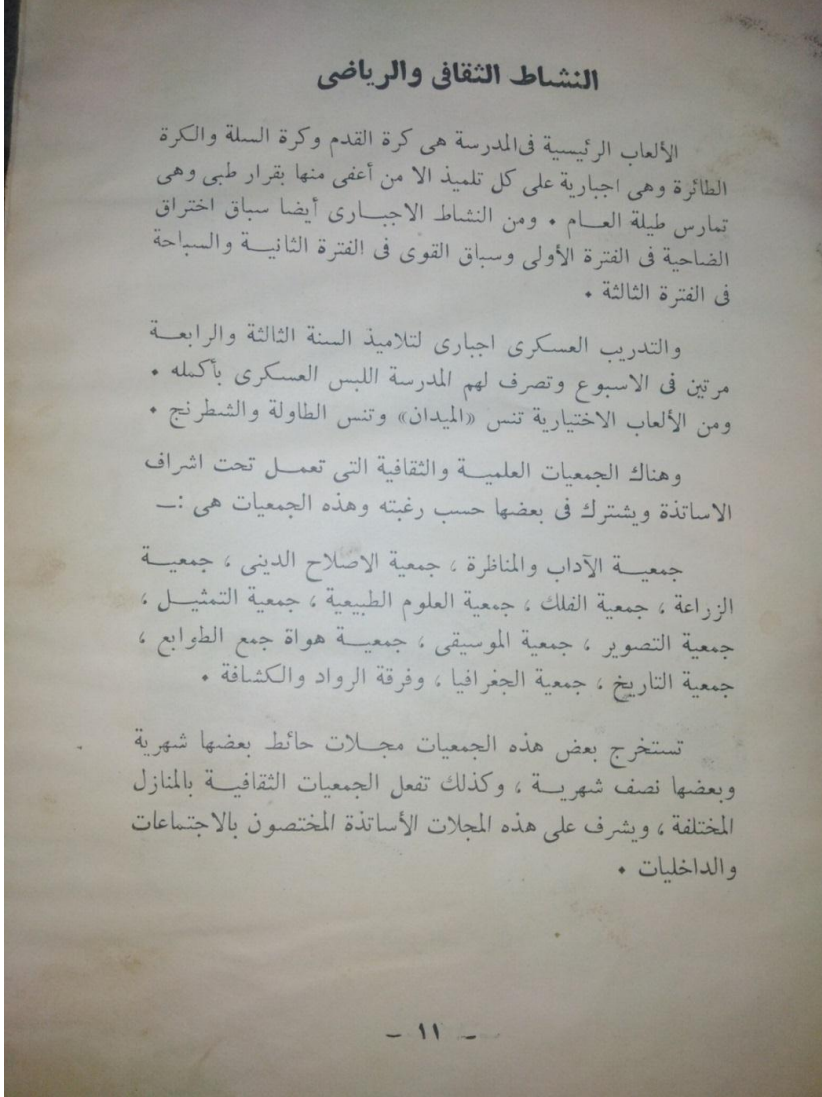 النشاط الثقافى والرياضى
الألعاب الرئيسية فى المدرسة هى كرة القدم وكرة السلة والكرة
الطائرة وهى اجبارية على كل تلميذ الا من أعفى منها بقرار طبى وهى
تمارس طيلة العـام • ومن النشاط الاجبـارى أيضا سباق اختراق
الضاحية فى الفترة الأولى وسباق القوى فى الفترة الثانيـة والسباحة
فى الفترة الثالثة •
والتدريب العسكرى اجبارى لتلاميذ السنة الثالثة والرابعـة
مرتين فى الاسبوع وتصرف لهم المدرسة اللبس العسكرى بأكمله •
ومن الألعاب الاختيارية تنس «الميدان» وتنس الطاولة والشطرنج •
وهناك الجمعيات العلميـة والثقافية التى تعمـل تحت اشراف
الاساتذة ويشترك فى بعضها حسب رغبته وهذه الجمعيات هى :ـ
جمعيـة الآداب والمناظرة ، جمعية الاصلاح الدينى ، جمعيـة
الزراعة ، جمعية الفلك ، جمعية العلوم الطبيعية ، جمعية التمثيـل ،
جمعية التصوير ، جمعية الموسيقى ، جمعيـة هواة جمع الطوابع ،
جمعية التاريخ ، جمعية الجغرافيا ، وفرقة الرواد والكشافة •
تستخرج بعض هذه الجمعيات مجـلات حائط بعضها شهرية
وبعضها نصف شهريـة ، وكذلك تفعل الجمعيات الثقافيـة بالمنازل
المختلفة ، ويشرف على هذه المجلات الأساتذة المختصون بالاجتماعات
والداخليات •
- ١١ -